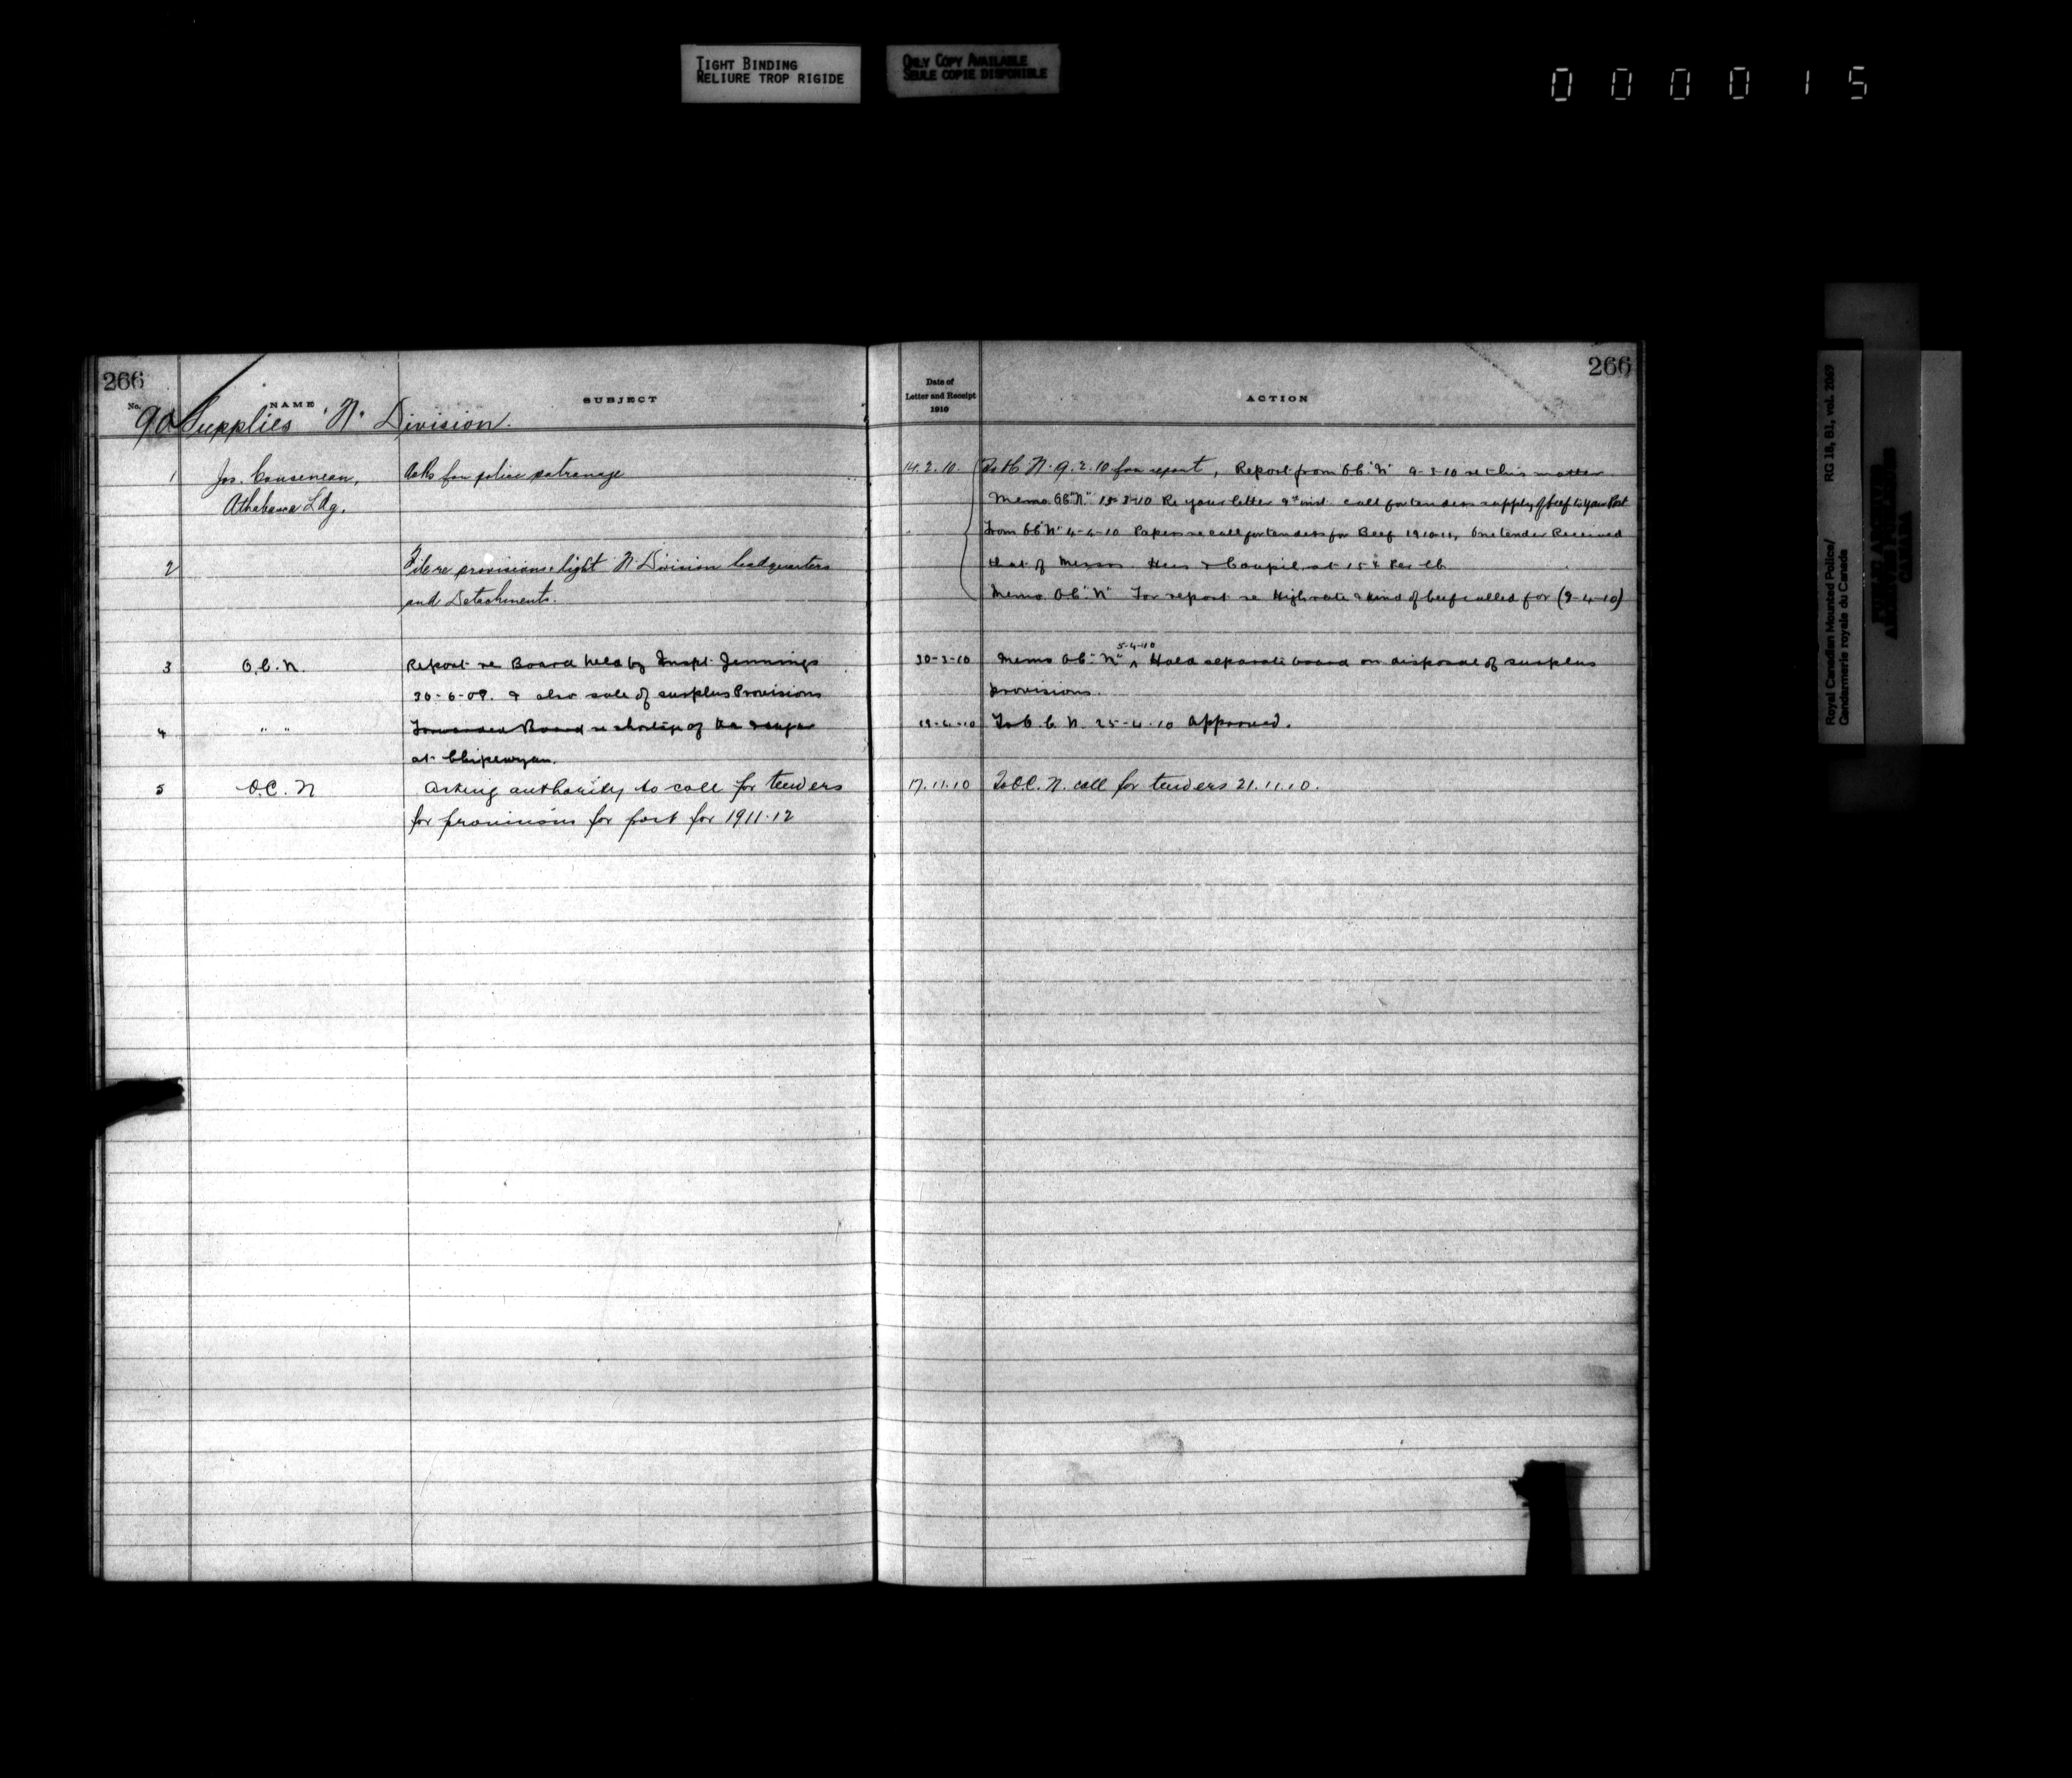 TIGHT BINDING
RELIURE TROP RIGIDE
ONLY COPY AVAILABLE
SEULE COPIE DISPONIBLE
000015
Royal Canadian Mounted Police/
Gendarmerie royale du Canada
RG 18, B1, vol. 2069
PUBLIC ARCHIVES
ARCHIVES PUBLIQUES
CANADA
266
No.
NAME
SUBJECT
90 Supplies "N" Division.
1 Jos. Cousineau, Asks for police patronage
Athabasca Ldg.
2 File re provisions & light N Division headquarters
and Detachments.
3 O.C. N. Report re Board held by Inspt. Jennings
30-6-09. & also sale of surplus Provisions
4 " " Forwarded Board re shortage of Tea & sugar
at Chipewyan.
5 O.C. N Asking authority to call for tenders
for provisions for post for 1911-12
266
Date of
Letter and Receipt
1910
ACTION
14.2.10. To OC. N. 9.2.10 for report, Report from O.C. "N" 9-3-10 re this matter
Memo O.C. "N" 15-3-10 Re your letter 9th inst. call for tenders supply of beef to your Post
From O.C. "N" 4-4-10 Papers re call for tenders for Beef 1910-11, One tender Received
that of Messrs. & at 15¢ Per lb
Memo O.C. "N" For report re High rate & kind of beef called for (9-4-10)
5-4-10
30-3-10 Memo O.C. "N" ^ Hold separate board on disposal of surplus
provisions.
19-4-10 To O.C. N. 25-4-10 Approved.
17.11.10 To O.C. N. call for tenders 21.11.10.